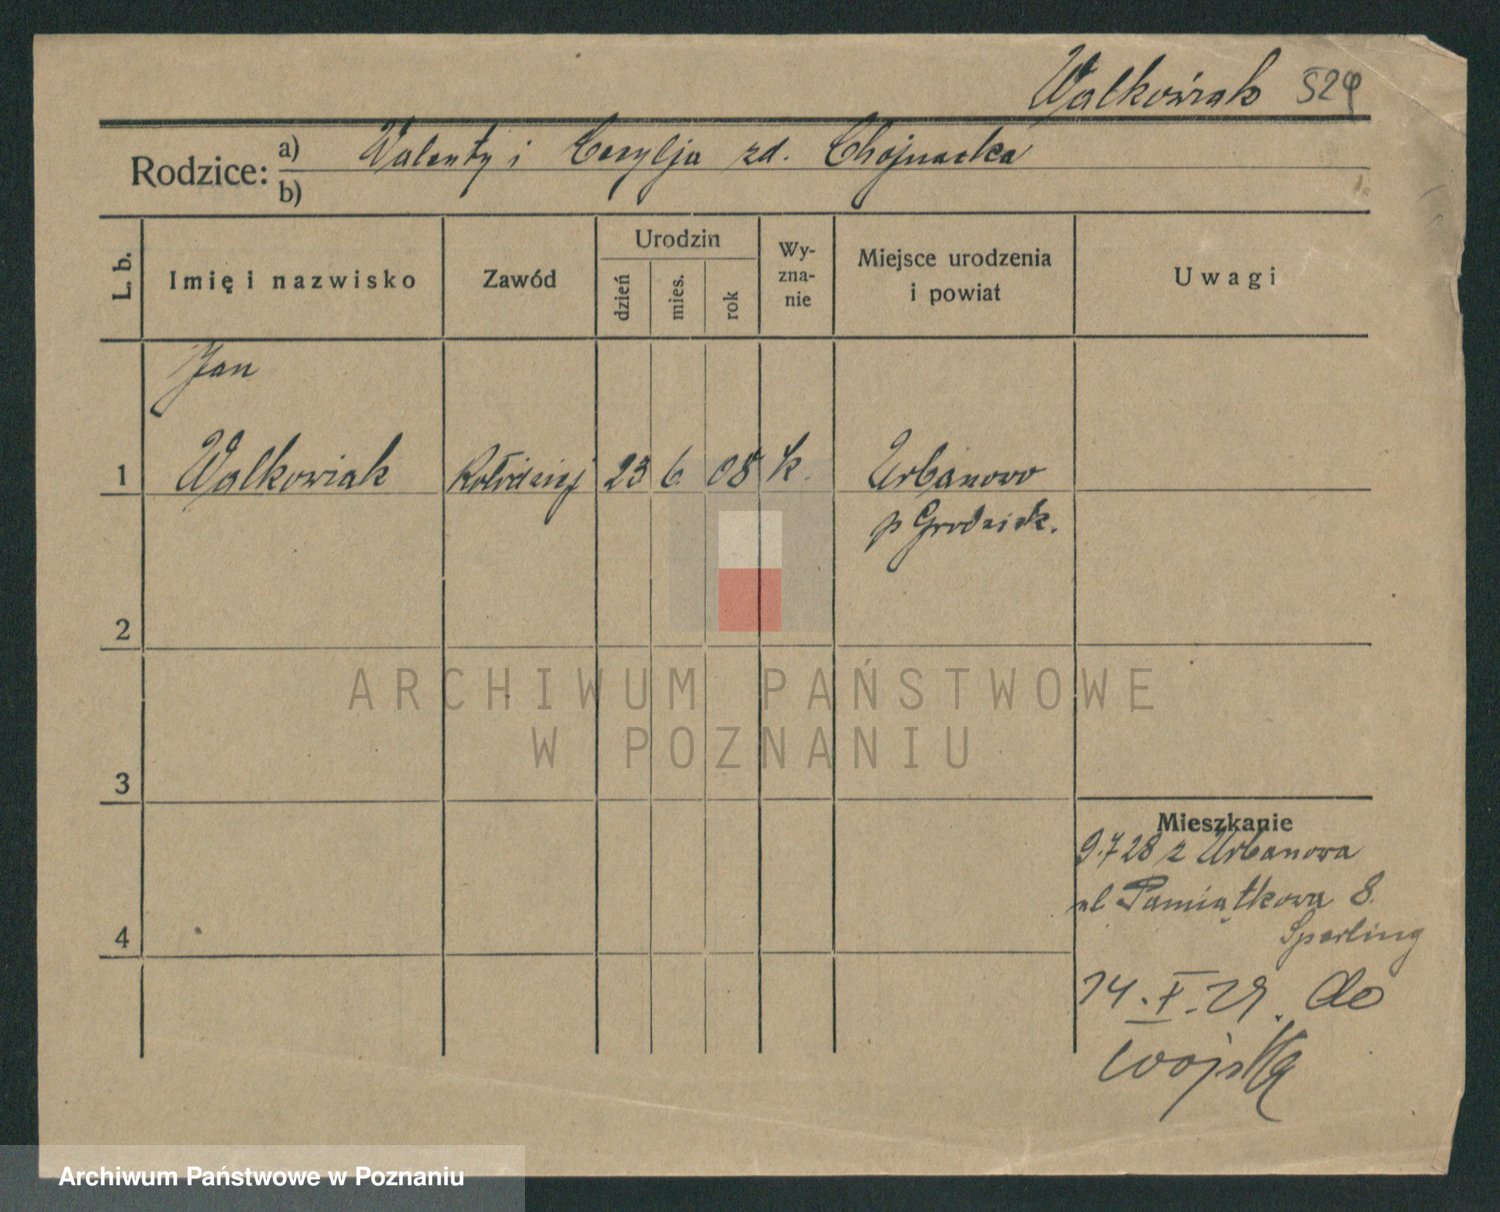 Walkowiak 529
Rodzice: a) Walenty i Cecylja zd. Chojnacka
b)
L. b. Imię i nazwisko Zawód Urodzin dzień mies. rok Wy-zna-nie Miejsce urodzenia i powiat Uwagi
Jan
1 Walkowiak Kołodziej 23 6 08 k. Urbanowo
p Grodzisk.
2
ARCHIWUM PAŃSTWOWE
W POZNANIU
3
Mieszkanie
9.7 28 z Urbanowa
ul Pamiątkowa 8.
4
Sperling
14. X. 29. do
wojska
Archiwum Państwowe w Poznaniu